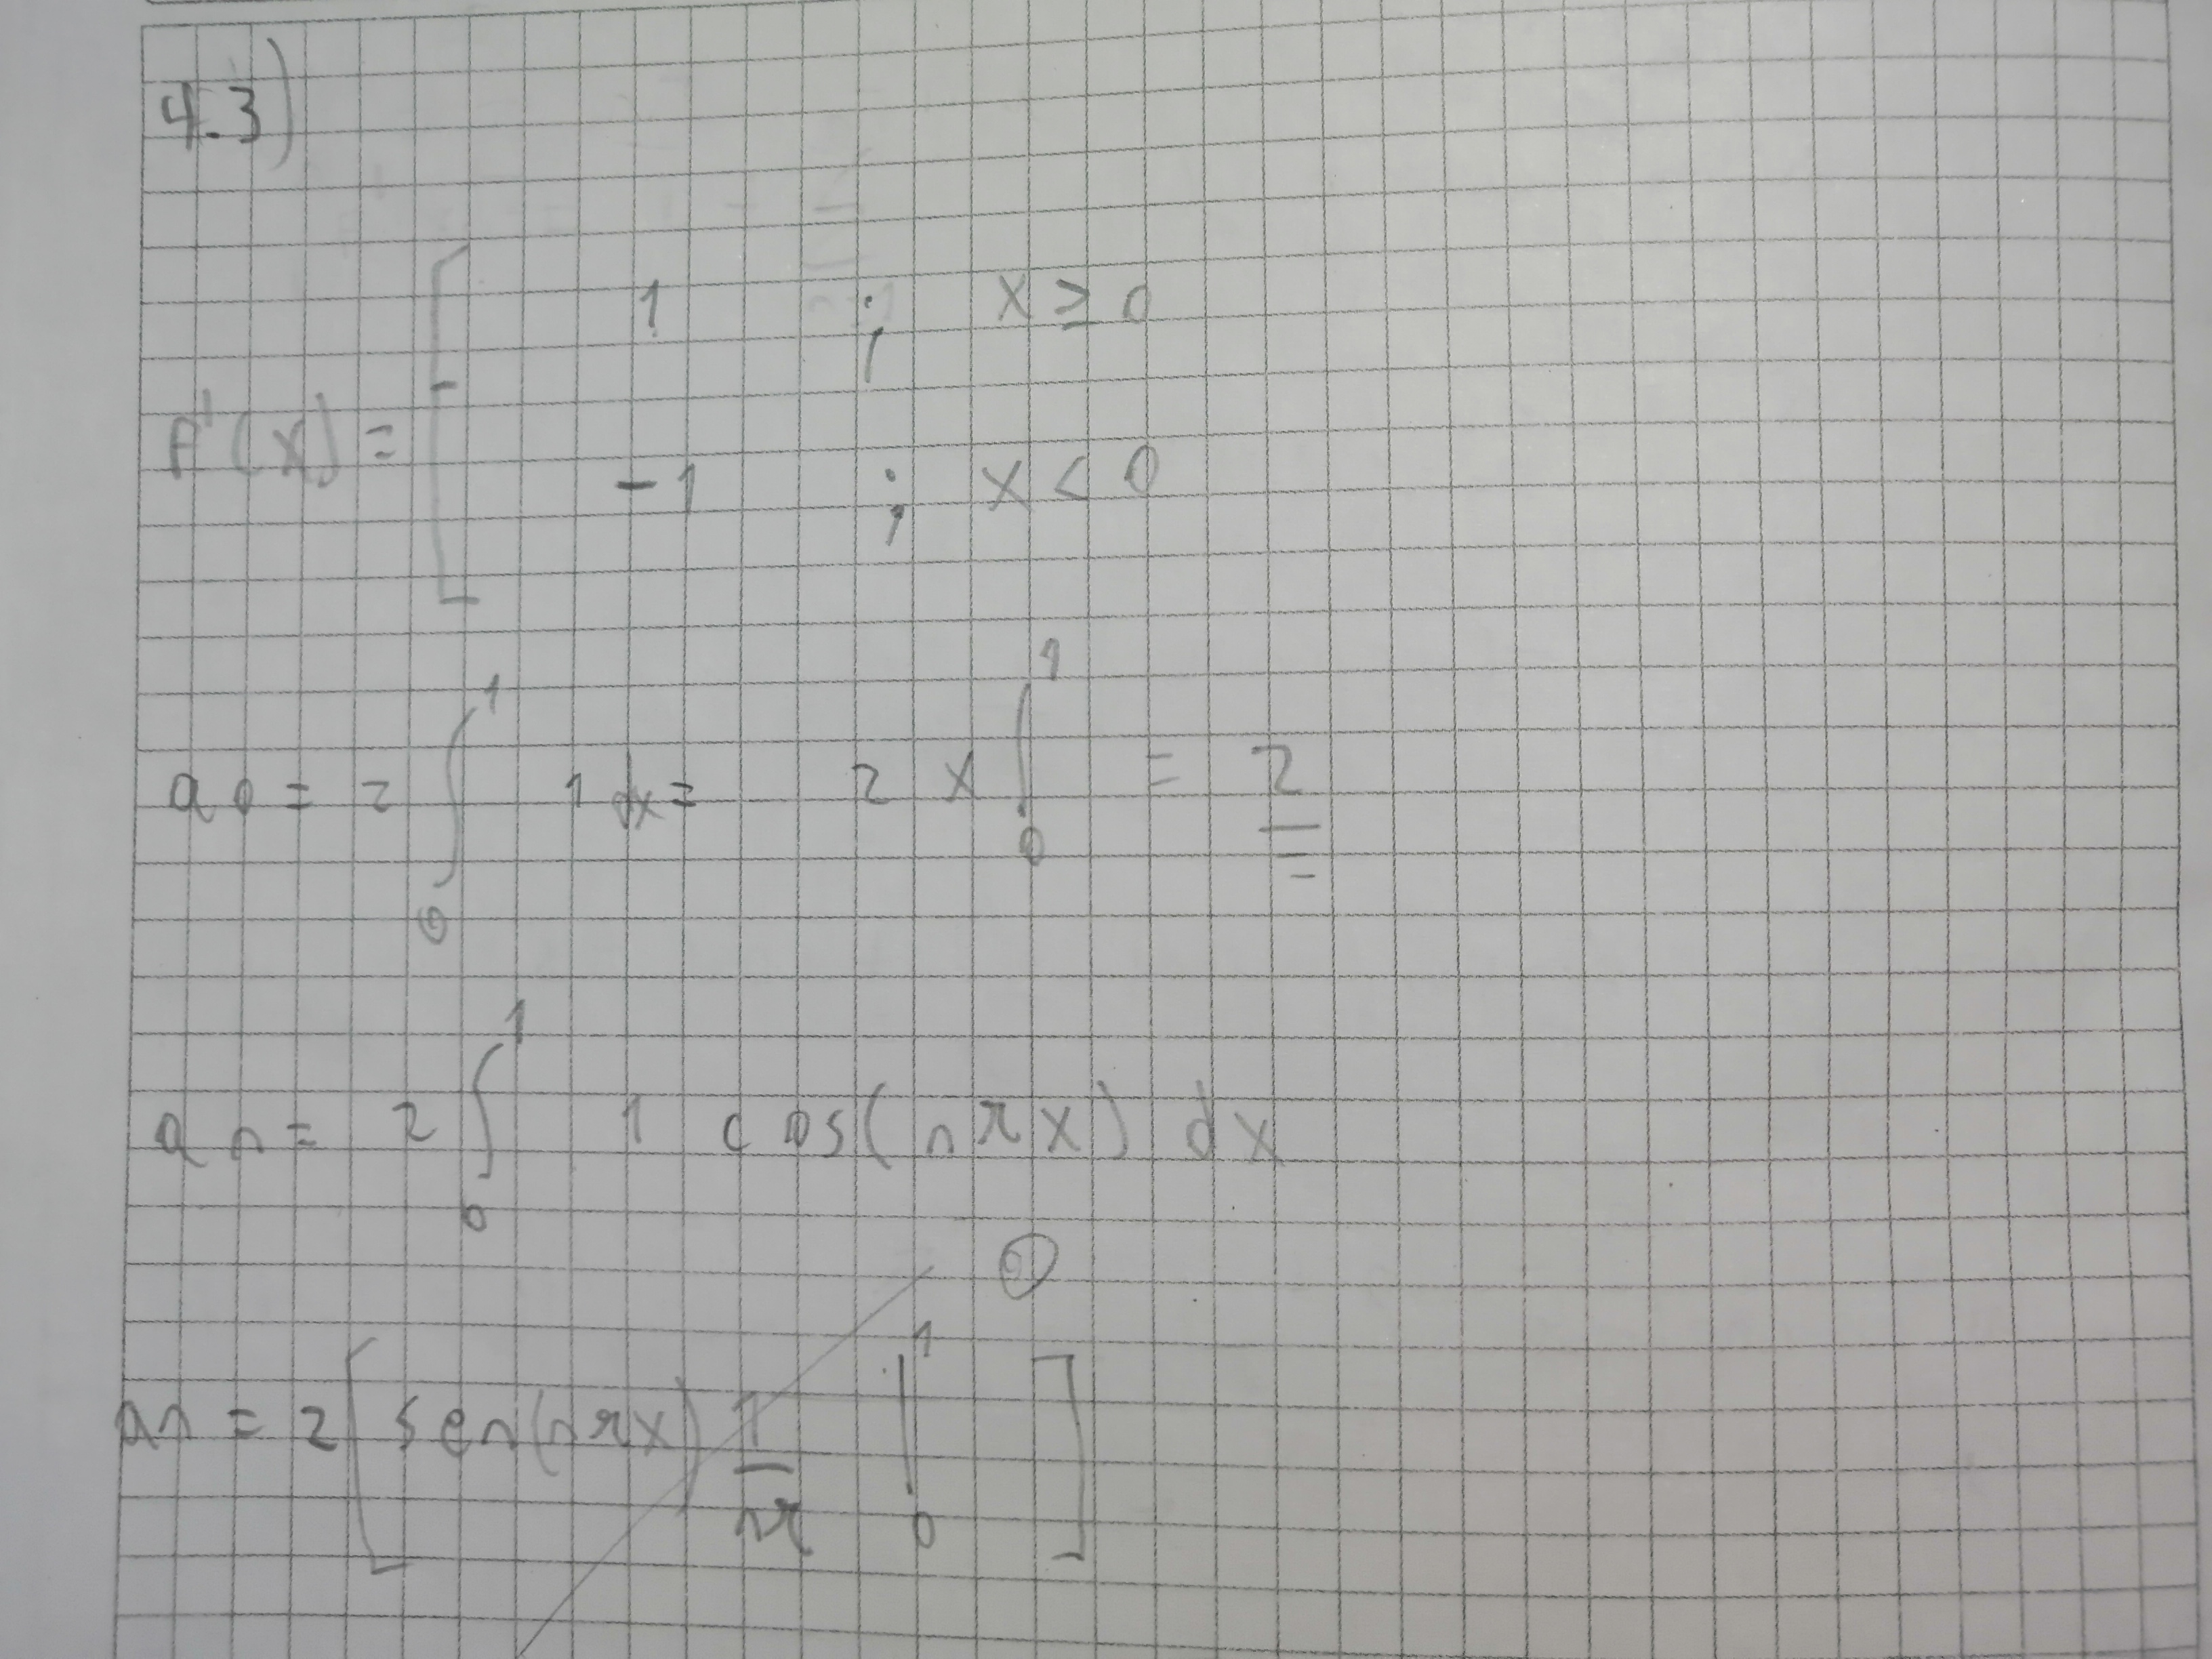 4.3)
1 ; x ≥ 0
f'(x) =
-1 ; x < 0
a0 = 2 ∫₀¹ 1 dx = 2 x |₀¹ = 2
an = 2 ∫₀¹ 1 cos(nπx) dx
0
an = 2 [ sen(nπx) 1/nπ |₀¹ ]